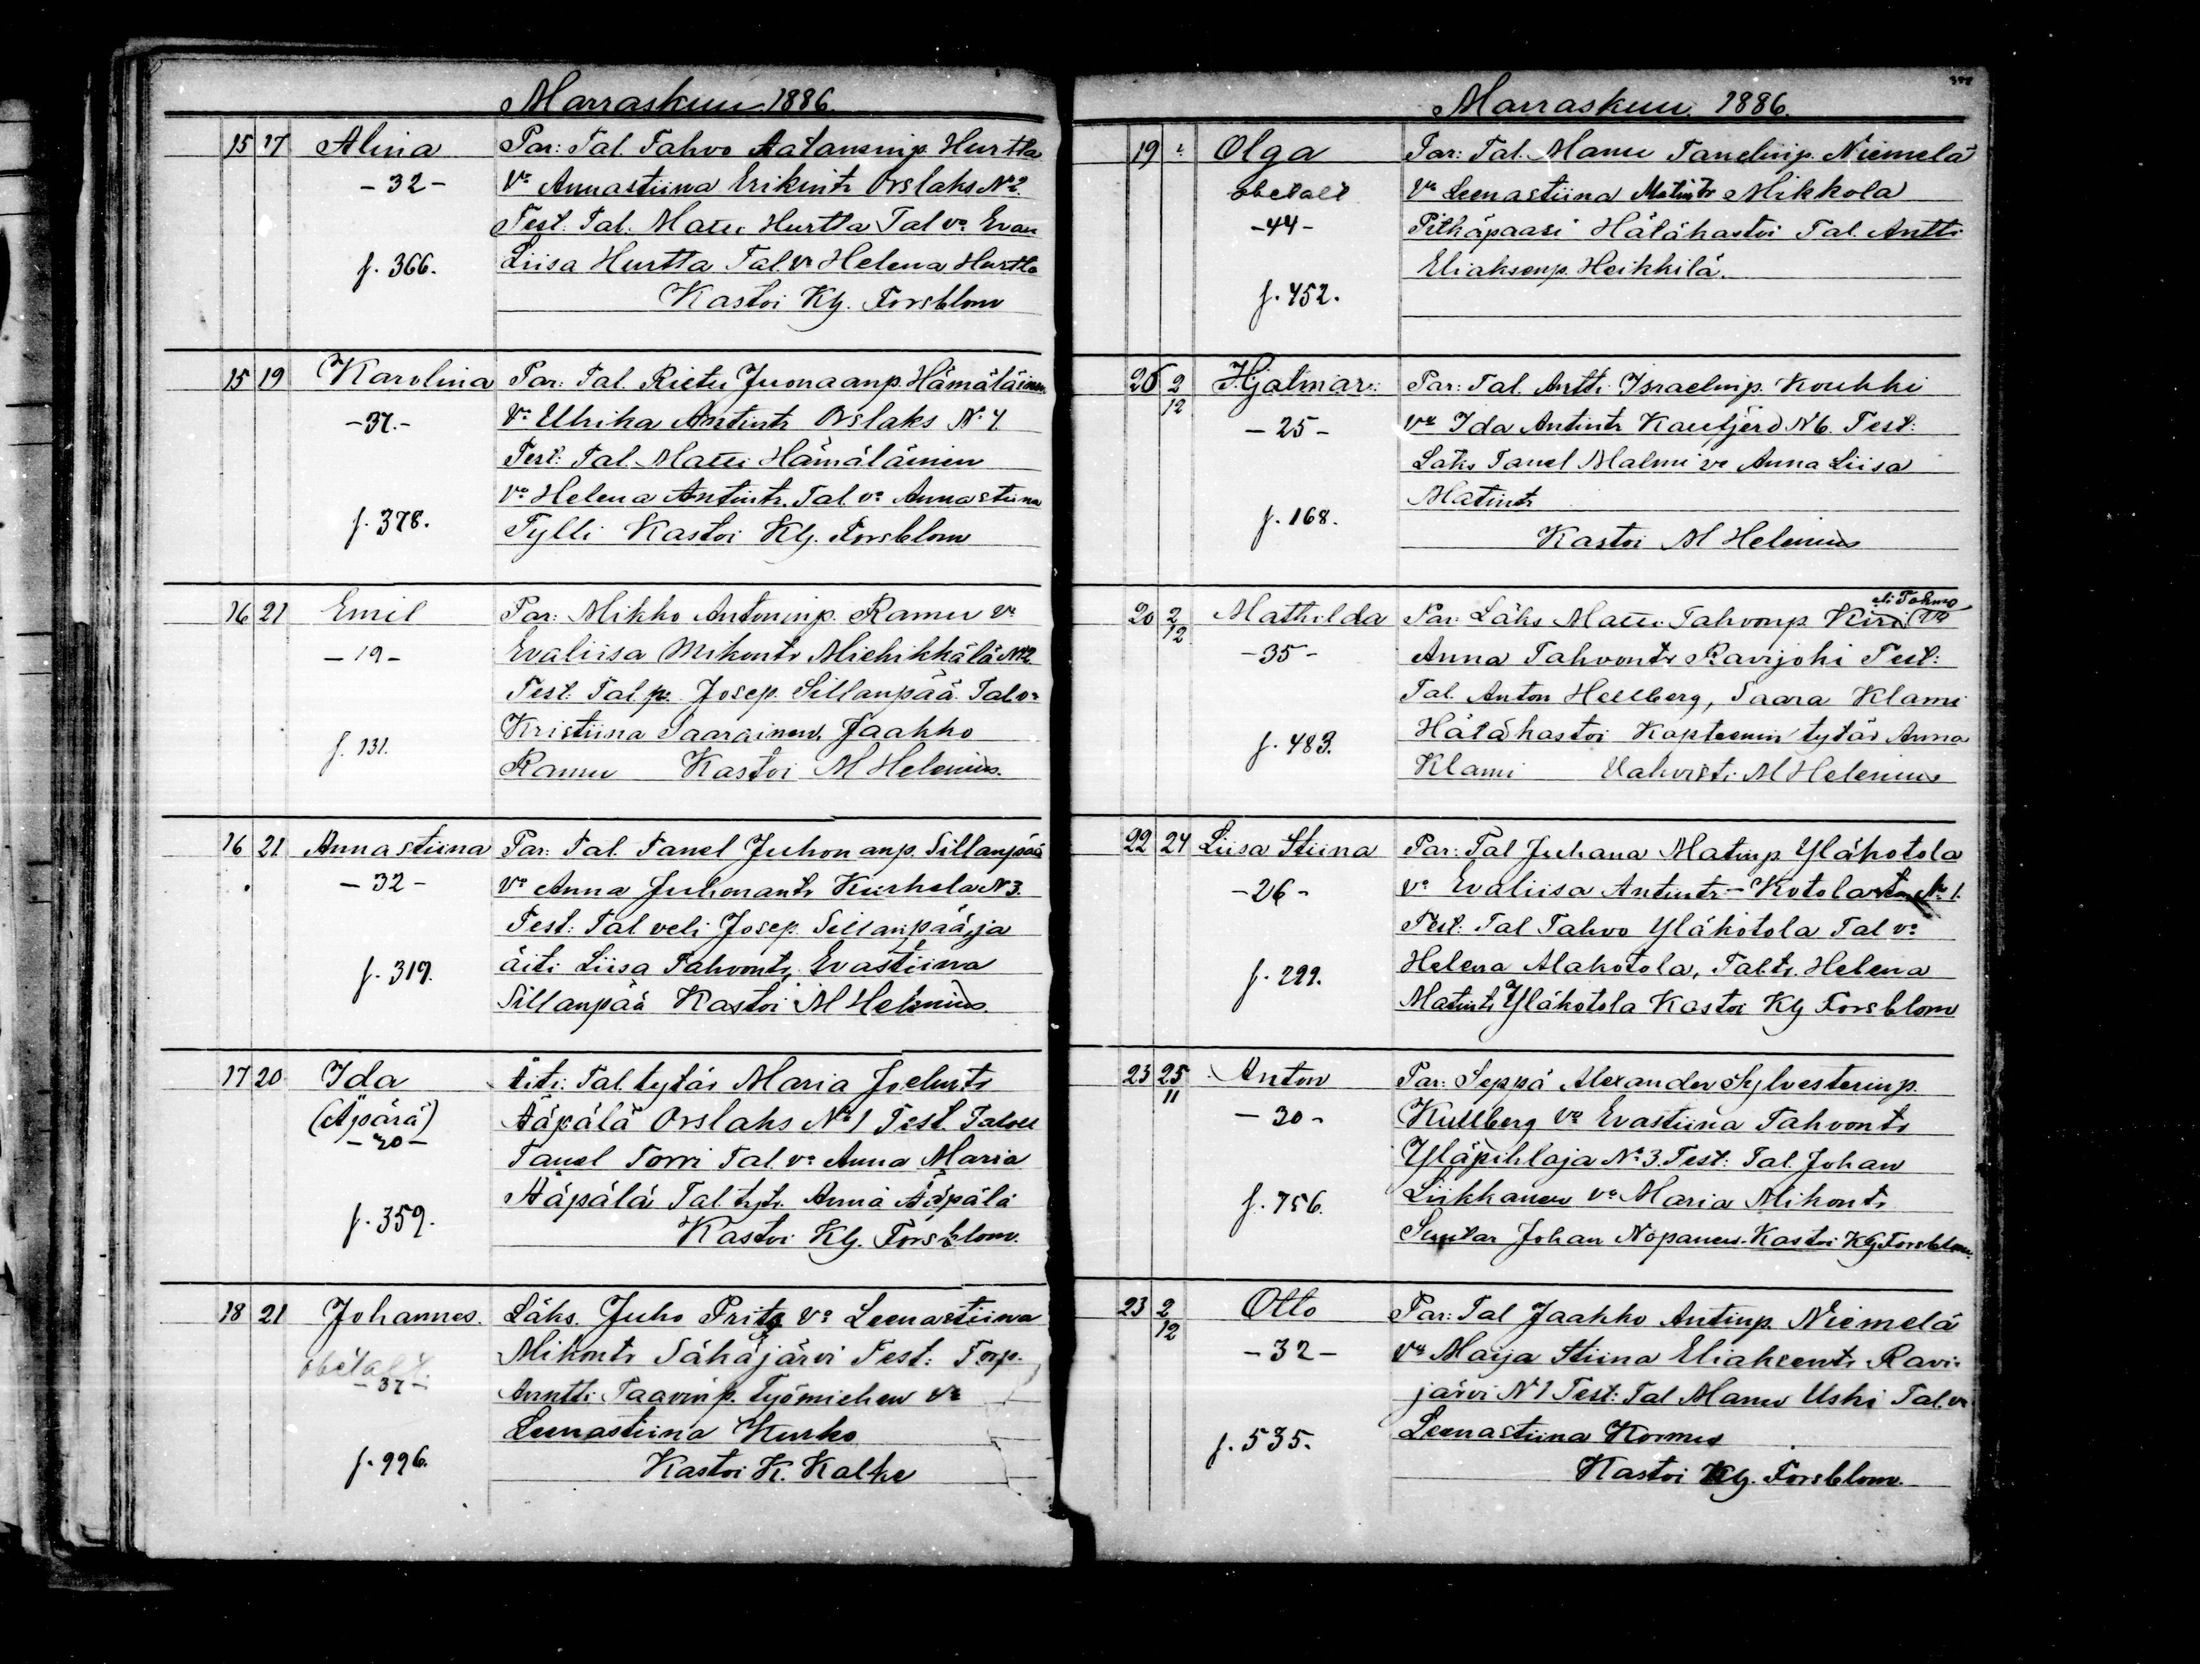 Marraskuu 1886.
15 17 Alina Par: Tal. Tahvo Aataminp. Hurtta
- 32 - Vo Annastiina Erikintr Orslaks No 2.
Test. Tal. Matti Hurtta Tal vo Evan
f. 366. Liisa Hurtta Tal. vo Helena Hurtta
Kastoi Klj. Forsblom
15 19 Karolina Par: Tal. Rietu Juonaanp. Hämäläinen
- 37. - Vo Ulrika Antintr Orslaks No 4.
Test: Tal. Matti Hämäläinen
vo Helena Antintr. Tal. vo Annastiina
f. 378. Tylli Kastoi Klj. Forsblom
16 21 Emil Par: Mikko Antoninp. Ramu vo
- 19 - Evaliisa Mikontr Miehikkälä No 2
Test: Tal. p. Josep. Sillanpää. Tal vo
f. 131. Kristiina Saarainen, Jaakko
Ramu Kastoi M Helenius.
16 21 Annastiina Par: Tal. Tanel Juhonanp. Sillanpää
- 32 - Vo Anna Juhonantr Kurhela N 3.
Test: Tal veli Josep. Sillanpää, ja
f. 319. äiti Liisa Tahvontr, Evastiina
Sillanpää Kastoi M Helenius.
17 20 Ida Äiti: Tal. tytär Maria Joelintr
(Äpärä) Ääpälä Orslaks No 1 Test.
- 20 - Tanel Torri Tal. vo Anna Maria
Ääpälä Tal. tytr. Anna Ääpälä
f. 359. Kastoi Klj. Forsblom.
18 21 Johannes. Läks. Juho Prits vo Leenastiina
obetalt. Mikontr Sähäjärvi Test: Torp.
- 37 - Anntti Taavinp. Työmiehen vo
Leenastiina Kurko
f. 996. Kastoi K. Kalke
Marraskuu. 1886.
19 Olga Par: Tal. Manu Tanelinp. Niemelä
obetalt Vo Leenastiina Matintr Mikkola
- 44 - Pitkäpaasi Hätäkastoi Tal. Antti
Eliaksenp. Heikkilä.
f. 452.
2 12 Hjalmar. Par: Tal. Antti Israelinp. Koukki
- 25 - Vo Ida Antintr N 6. Test:
Läks Tanel Malmi vo Anna Liisa
Matintr
f. 168. Kastoi M Helenius
eli Tahvo
20 2 12 Mathilda Par: Läks Matti Tahvonp. Kiri vo
- 35 - Anna Tahvontr Ravijoki Test:
Tal. Anton Hellberg, Saara Klami
f. 483. Hätäkastoi Kapteenin tytär Anna
Klami Vahvisti M Helenius
22 24 Liisa Stiina Par: Tal Juhana Matinp. Yläkotola
- 26 - vo Evaliisa Antintr - Kotola No 1.
Test: Tal Tahvo Yläkotola Tal vo
f. 299. Helena Alakotola, Tal. tr. Helena
Matintr Yläkotola Kastoi Klj Forsblom
23 25 11 Anton Par: Seppä Alexander Sylvesterinp.
- 30 - Kullberg vo Evastiina Tahvontr
Yläpihlaja No 3. Test: Tal. Johan
f. 756. Liikkanen vo Maria Mikontr
Suutar Johan Nopanen. Kastoi Klj Forsblom.
23 2 12 Otto Par: Tal Jaakko Antinp. Niemelä
- 32 - Vo Maija Stiina Eliaksentr Ravi-
järvi N 1 Test: Tal Manu Uski Tal. vo
f. 535. Leenastiina Kormu
Kastoi Klj. Forsblom.